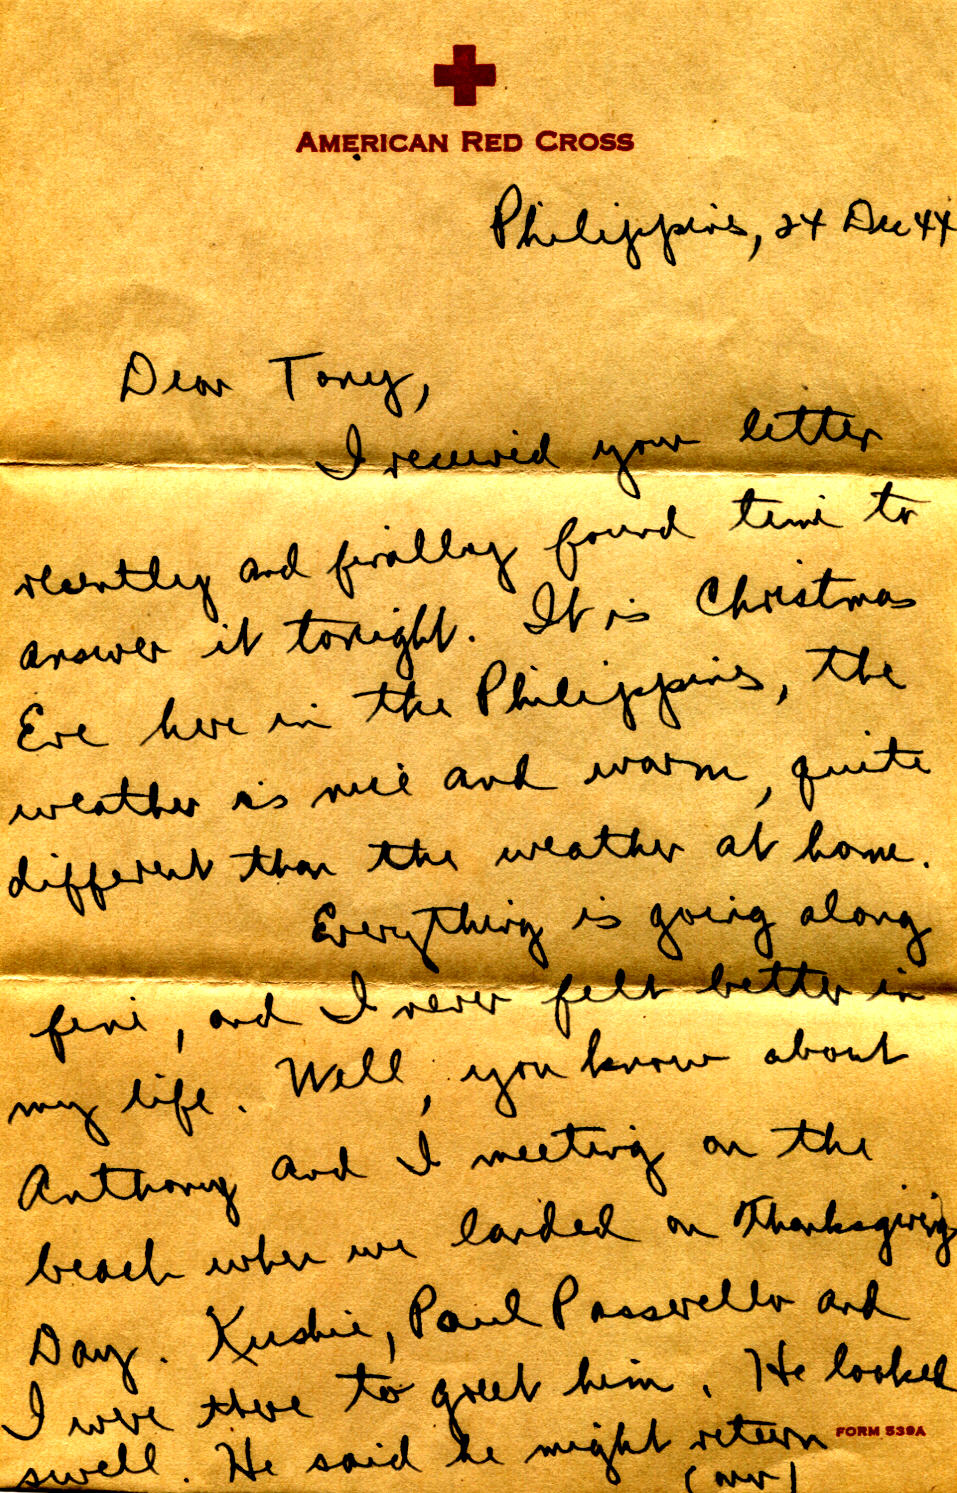 AMERICAN RED CROSS
Philippines, 24 Dec 44
Dear Tony,
I received your letter
recently and finally found time to
answer it tonight. It is Christmas
Eve here in the Philippines, the
weather is nice and warm, quite
different than the weather at home.
Everything is going along
fine, and I never felt better in
my life. Well, you know about
Anthony and I meeting on the
beach when we landed on Thanksgiving
Day. Kushie, Paul Passerello and
I were there to greet him. He looked
swell. He said he might return
FORM 539A
(over)